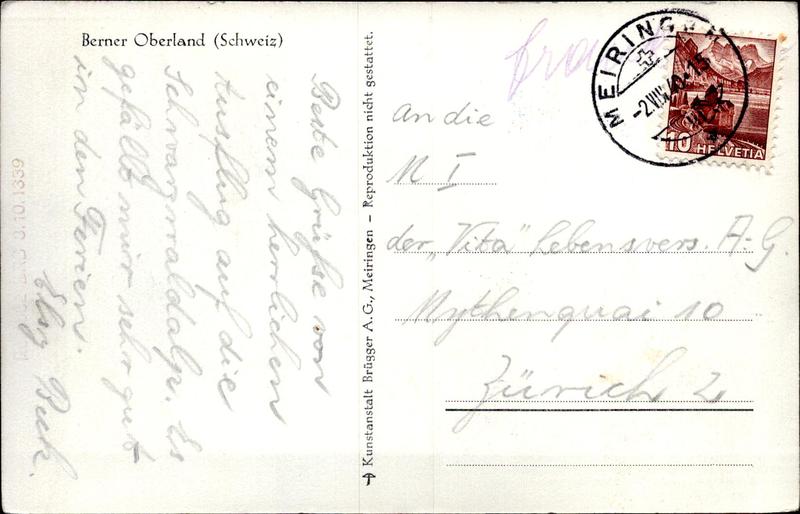 Berner Oberland (Schweiz)
Beste Grüße von
einem herrlichen
Ausflug auf die
Schwarzwaldalp. Es
gefällt mir sehr gut
in den Ferien.
Elsy Beck.
Kunstanstalt Brügger A.G., Meiringen – Reproduktion nicht gestattet.
MEIRINGEN
10 HELVETIA
An die
M I
der „Vita" Lebensvers. A-G.
Mythenquai 10
Zürich 2